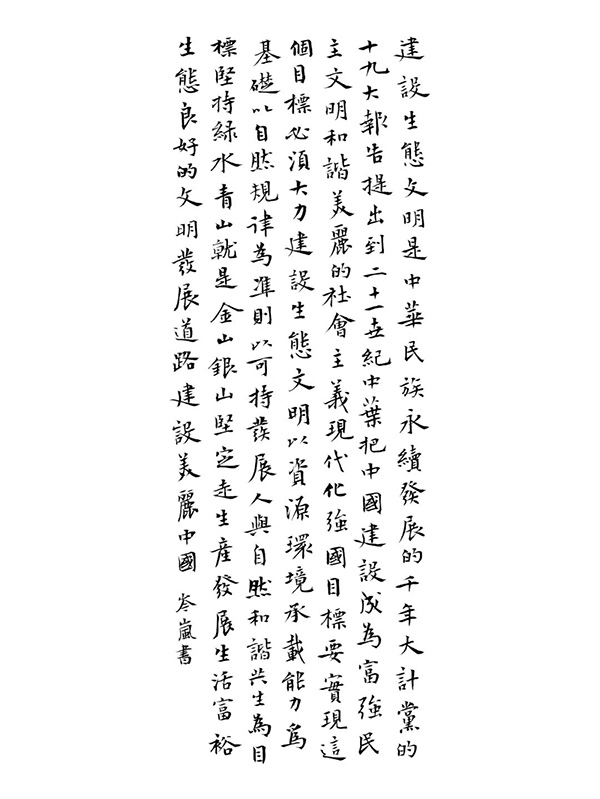 建設生態文明是中華民族永續發展的千年大計黨的
十九大報告提出到二十一世紀中葉把中國建設成為富強民
主文明和諧美麗的社會主義現代化強國目標要實現這
個目標必須大力建設生態文明以資源環境承載能力為
基礎以自然規律為準則以可持發展人與自然和諧共生為目
標堅持綠水青山就是金山銀山堅定走生產發展生活富裕
生態良好的文明發展道路建設美麗中國 岑嵐書